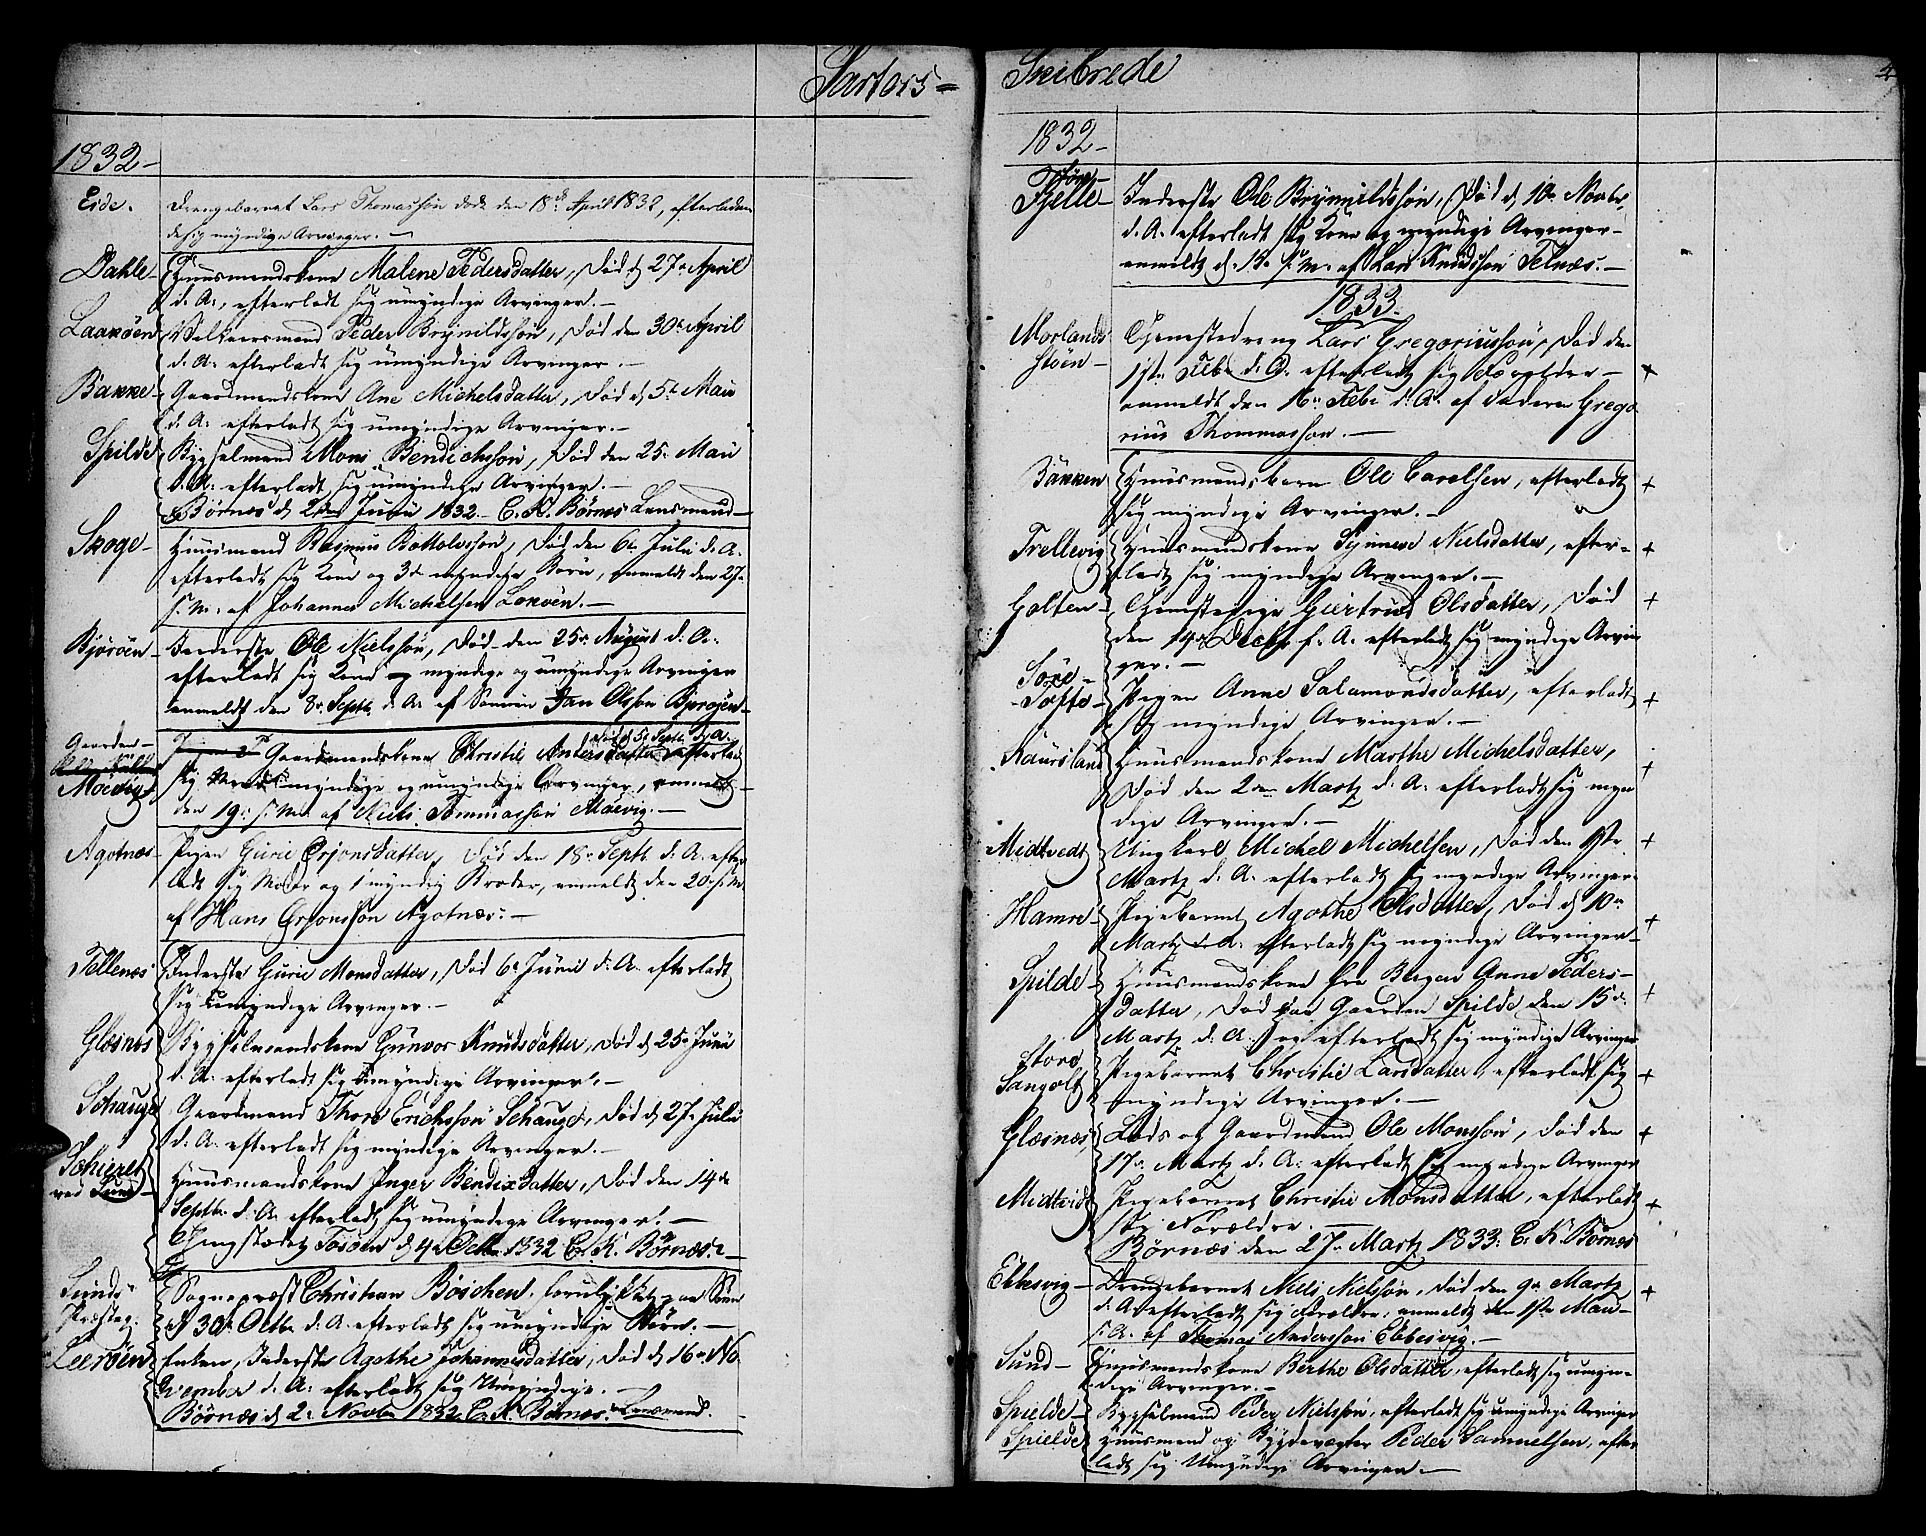 Sartors-
1832-
Eide. Drengebarnet Lars Thomassøn døde den 18de April 1832, efterladen
de sig myndige Arvinger.-
Dahle- Huusmandskone Malene Pedersdatter, død d 27de April
d. A. efterladt sig umyndige Arvinger.-
Laanøen Peder Brynildssøn, død den 30te April
d. A. efterladt sig umyndige Arvinger.-
Bakke- Gaardmandskone Ane Michelsdatter, død d 5te Maii
d. A. efterladt sig umyndige Arvinger.-
Spilde Bygselmand Mons Bendichsson, død den 25. Maii
d. A. efterladt sig umyndige Arvinger.-
Børnæs d Junii 1832. C. K. Børnæs Lensmand-
Skoge- Huusmand Rasmus Bottolvssøn, død den 6te Julii d. A.
efterladt sig Kone og 3de myndige Børn, anmeldt den 27.
s. M. af Johannes Michelsen Lonøen.-
Bjørøen- Inderste Ole Nielssøn, død den 25. August d. A.
efterladt sig Kone og myndige og umyndige Arvinger
anmeldt den 8. Septb. d. A. af Sønnen Jan Olsson Bjorøen-
Gaarden
Moevig Gaardmandskone Christie Andersdatter død d 5te Septb. d. A. efterladt
sig myndige og umyndige Arvinger, anmeldt
den 19. s. M. af Niels Tommassøn Moevig.-
Agotnæs- Pigen Gurie Ørjansdatter, død den 18. Septb. d. A. efter
ladt sig Moder og 1 myndig Broder, anmeldt den 20. s. M.
af Hans Ørjonssøn Agotnæs.-
Tellenæs Inderste Gurie Monsdatter, død 6te Junii d. A. efterladt
sig umyndige Arvinger.-
Glæsnæs Bygselmandskone Gunvor Knudsdatter, død d 25. Junii
d. A. efterladt sig umyndige Arvinger.-
Schauge Gaardmand Thore Erichssøn Schauge, død d 27. Julii
d. A. efterladt sig myndige Arvinger.-
Schieret
ved Sund- Huusmandskone Inger Bendixdatter, død den 14de
Septb. d. A. efterladt sig umyndige Arvinger.-
Thingstædet Tosøen d 4de Octb. 1832 C. K. Børnæs.-
Sunds
Præsteg. Sognepræst Christian Böschen, forulykket paa Søen
d 30te Octb. d. A. efterladt sig umyndige Børn.-
Leerøen Enken, Inderste Agathe Johannesdatter, død d 16. No-
vember d. A. efterladt sig Umyndige.-
Børnæs d 2. Novbr 1832 C. K. Børnæs. Lensmand.
Skibrede
1832-
Fjelle- Inderste Ole Brynnildssøn, død d 10de Novbr.
d. A. efterladt sig Kone og myndige Arvinger-
anmeldt d. 13. s. M. af Lars Knudssøn Telnæs.-
1833.
Morlands
støen- Tjenestedreng Lars Gregoriussøn, død den
Feb. d. A. efterladt sig Forældre-
anmeldt den 16de Feb. d. A. af Faderen Grego
rius Thommasson.-
Bakken Huusmandsbarn Ole Carelsen, efterladt +
sig myndige Arvinger.-
Trellevig Huusmandskone Synneve Nielsdatter, efter- +
ladt sig myndige Arvinger.-
Golten- Tjenestepige Giertrud Olsdatter, død +
den 14de Decbr. f. A. efterladt sig myndige Arvin
ger.-
Tofte- Pigen Anne Salamonsdatter, efterladt +
sig myndige Arvinger.-
Kaursland Huusmandskone Marthe Michelsdatter, +
død den 2den Martz d. A. efterladt sig myn
dige Arvinger.-
Midtvedt Ungkarl Michel Michelsen, død den +
Martz d. A. efterladt sig myndige Arvinger.
Hamre- Pigebarnet Agathe Olsdatter, død d 10de +
Martz d. A. efterladt sig myndige Arvinger-
Spilde- Huusmandskone fra Bergen Anne Peders- +
datter, død paa Gaarden Spilde den 15de
Martz d. A. og efterladt sig myndige Arvinger
Store
Sangolt Pigebarnet Christie Larsdatter, efterladt sig +
myndige Arvinger.-
Glæsnæs Lods og Gaardmand Ole Monssøn, død den +
17. Martz d. A. efterladt sig myndige Arvinger
Midtvedt Pigebarnet Christie Monsdatter, efterladt +
sig Forældre.-
Børnæs den 27. Martz 1833. C. K. Børnæs
Ebbesvig- Drengebarnet Niels Nielsøn, død den 9de Martz +
d. A. efterladt sig Forældre, anmeldt den 1ste Maii-
d. A. af Thomas Anderssøn Ebbesvig.-
Sund- Huusmandskone Berthe Olsdatter, efterladt sig umyn-
dige Arvinger.-
Spielde- Bygselmand Peder Nielssøn, efterladt sig umyndige Arvinger
Spielde Huusmand og Bygdevægter Peder Samuelsen, efter
ladt sig Umyndige Arvinger.-